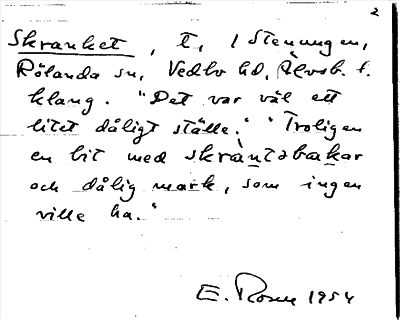 2
Skranket, t, i Stenungen,
Rölanda sn, Vedbo hd, Älvsb. l.
klang. "Det var väl ett
litet dåligt ställe." "Troligen
en bit med skräntabakar
och dålig mark, som ingen
ville ha."
E. Rosen 1954